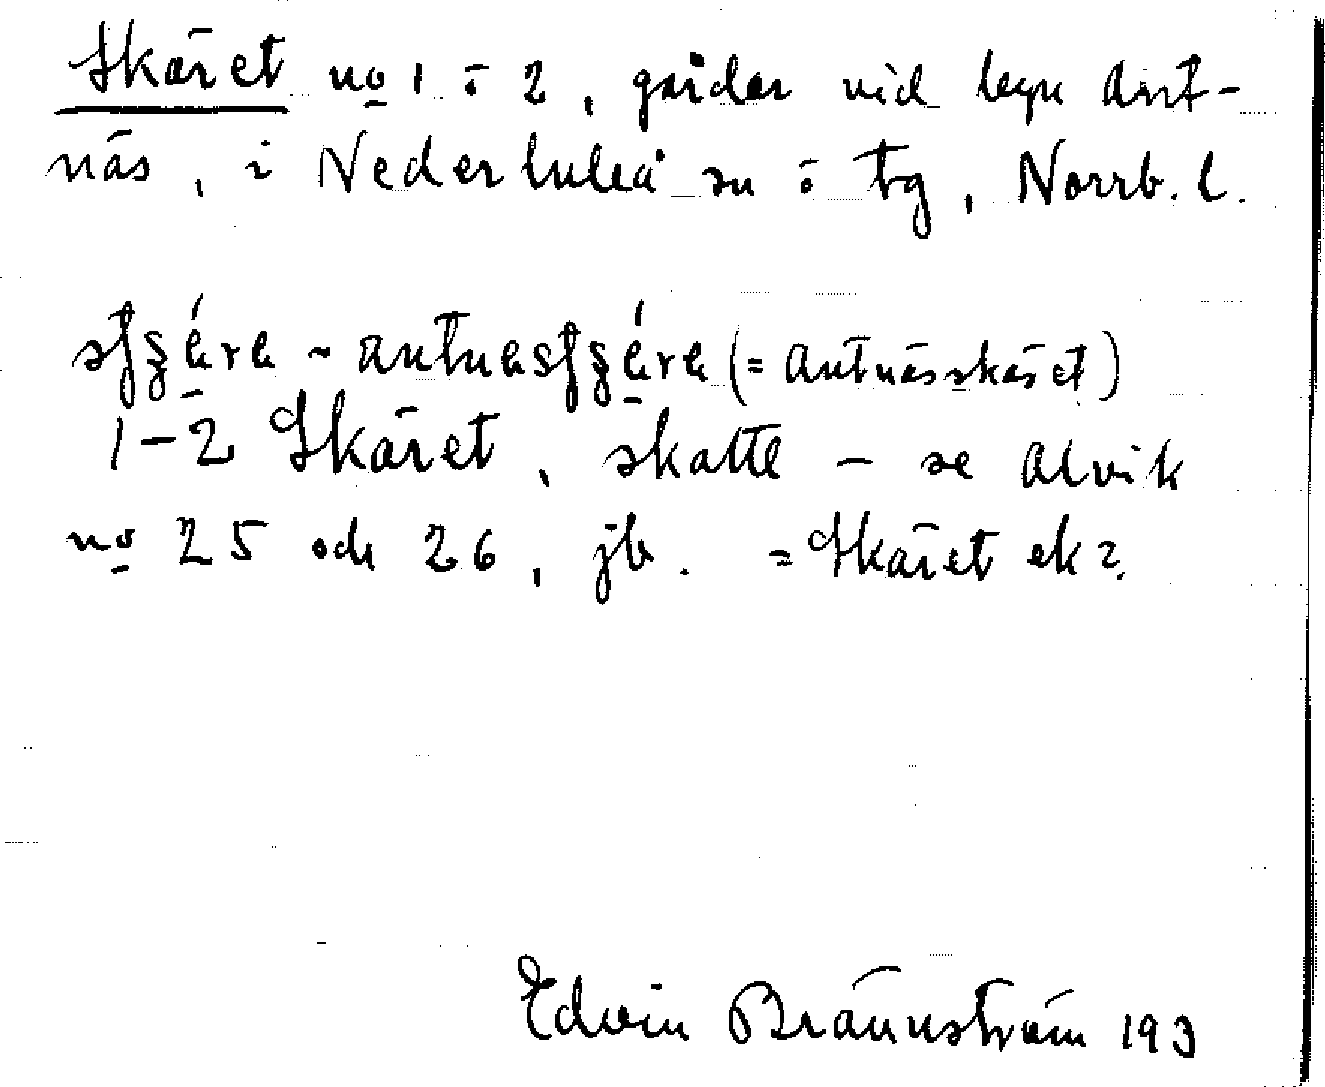 Skäret no 1 o 2, gårdar vid byn Ant-
näs, i Nederluleå sn o tg, Norrb. l.
(= Antnässkäret)
1-2 Skäret, skatte - se Alvik
no 25 och 26, jb. = Skäret ek?
Edvin Brännström 193